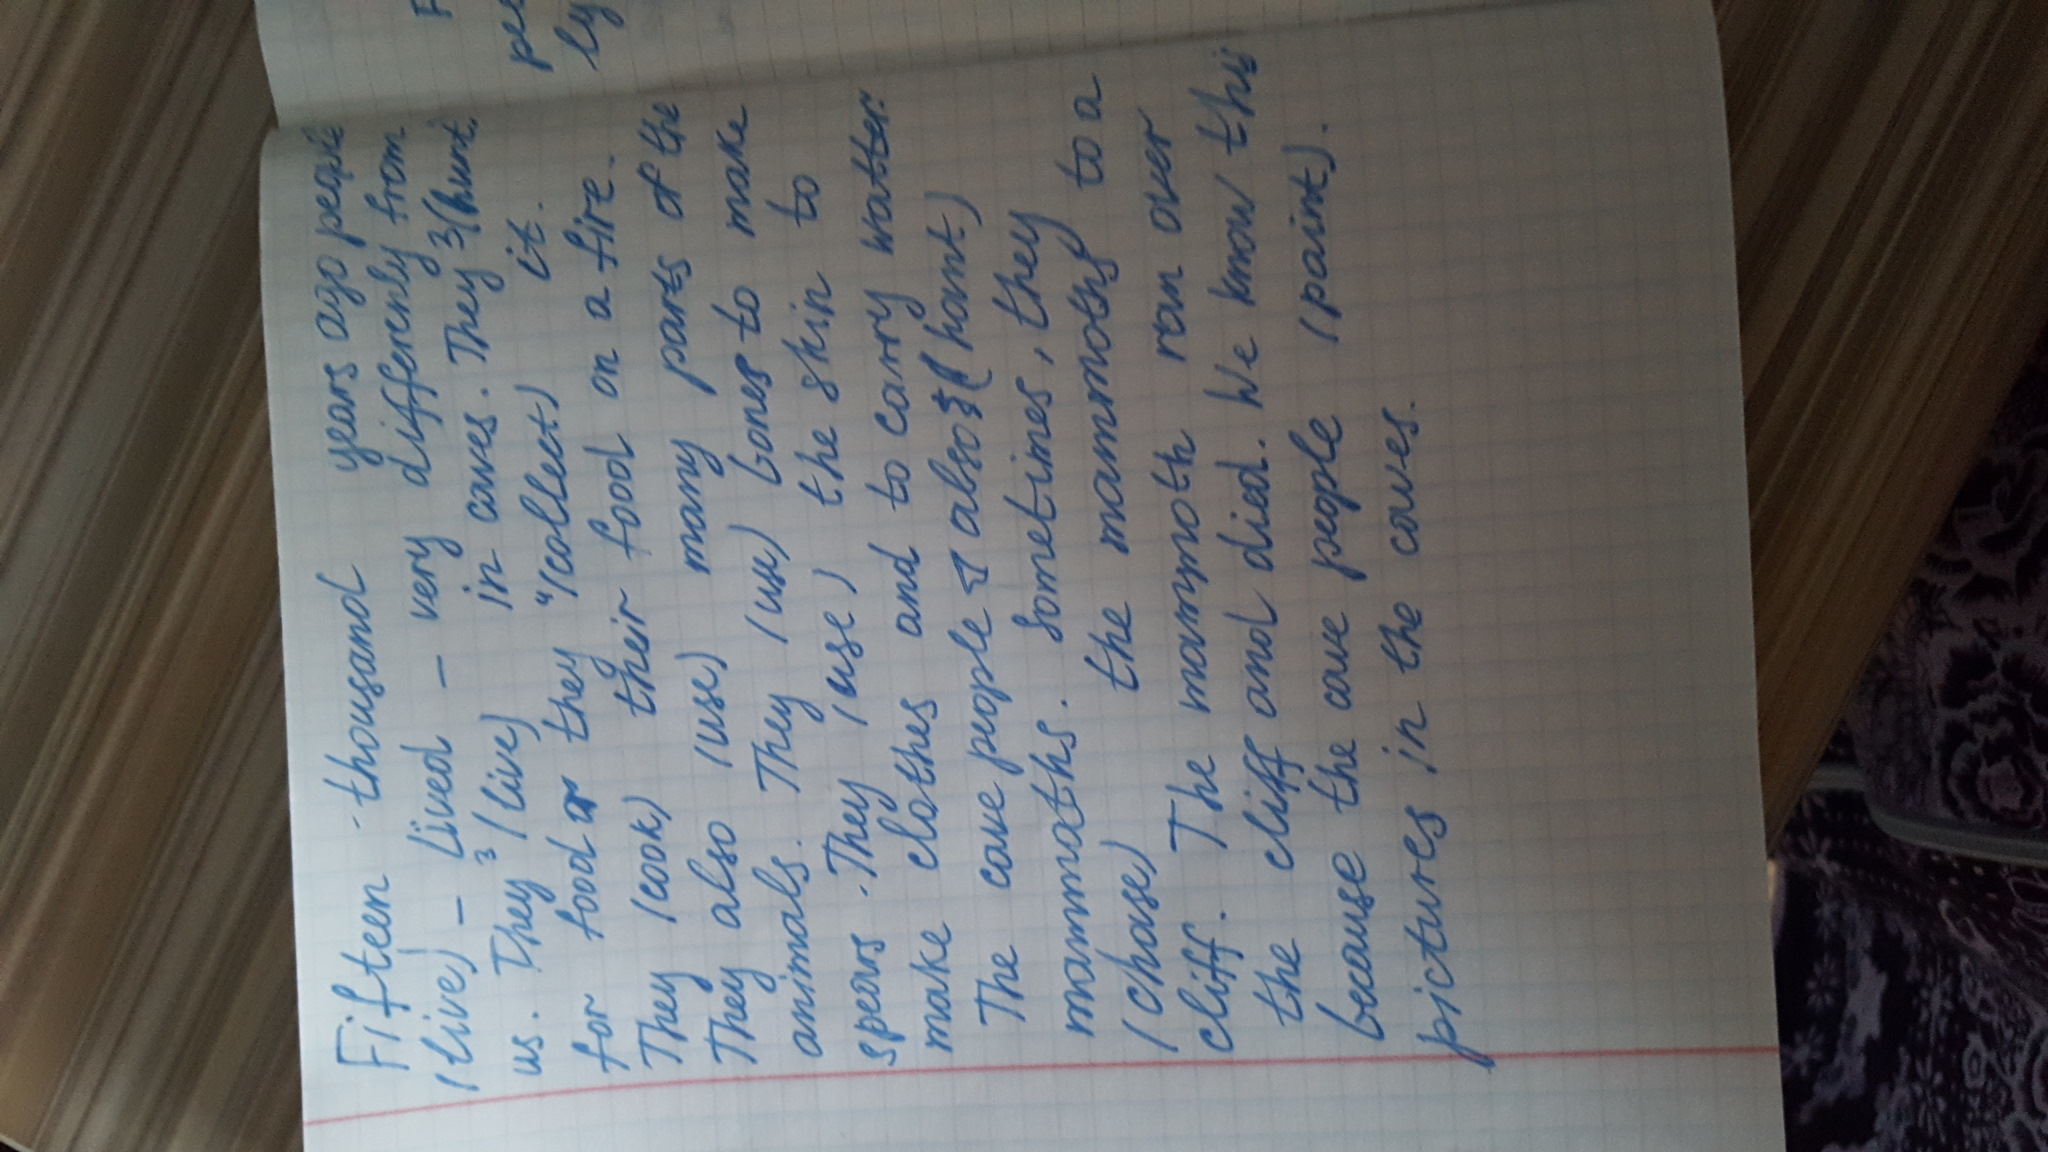 Fifteen thousand years ago people
(live) - lived - very differently from
us. They 3(live) in caves. They 3(hunt
for food or they 4(collect) it.
They (cook) their food on a fire.
They also (use) many parts of the
animals. They (use) bones to make
spears. They (use) the skin to
make clothes and to carry watter.
The cave people also (hant)
mammoths. Sometimes, they
(chase) the mammoths to a
cliff. The mammoth ran over
the cliff and died. We know this
because the cave people (paint).
pictures in the caves.
pe
ly